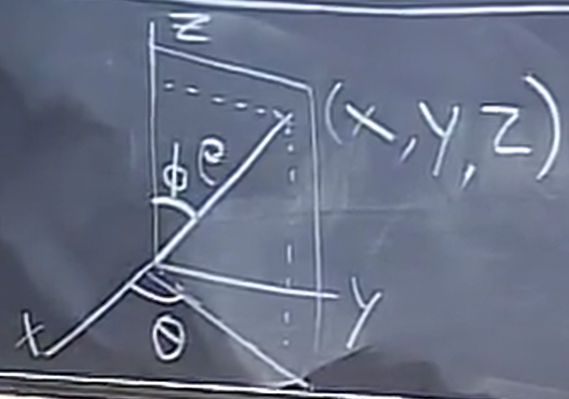 z
(x,y,z)
ϕ ρ
y
x
θ